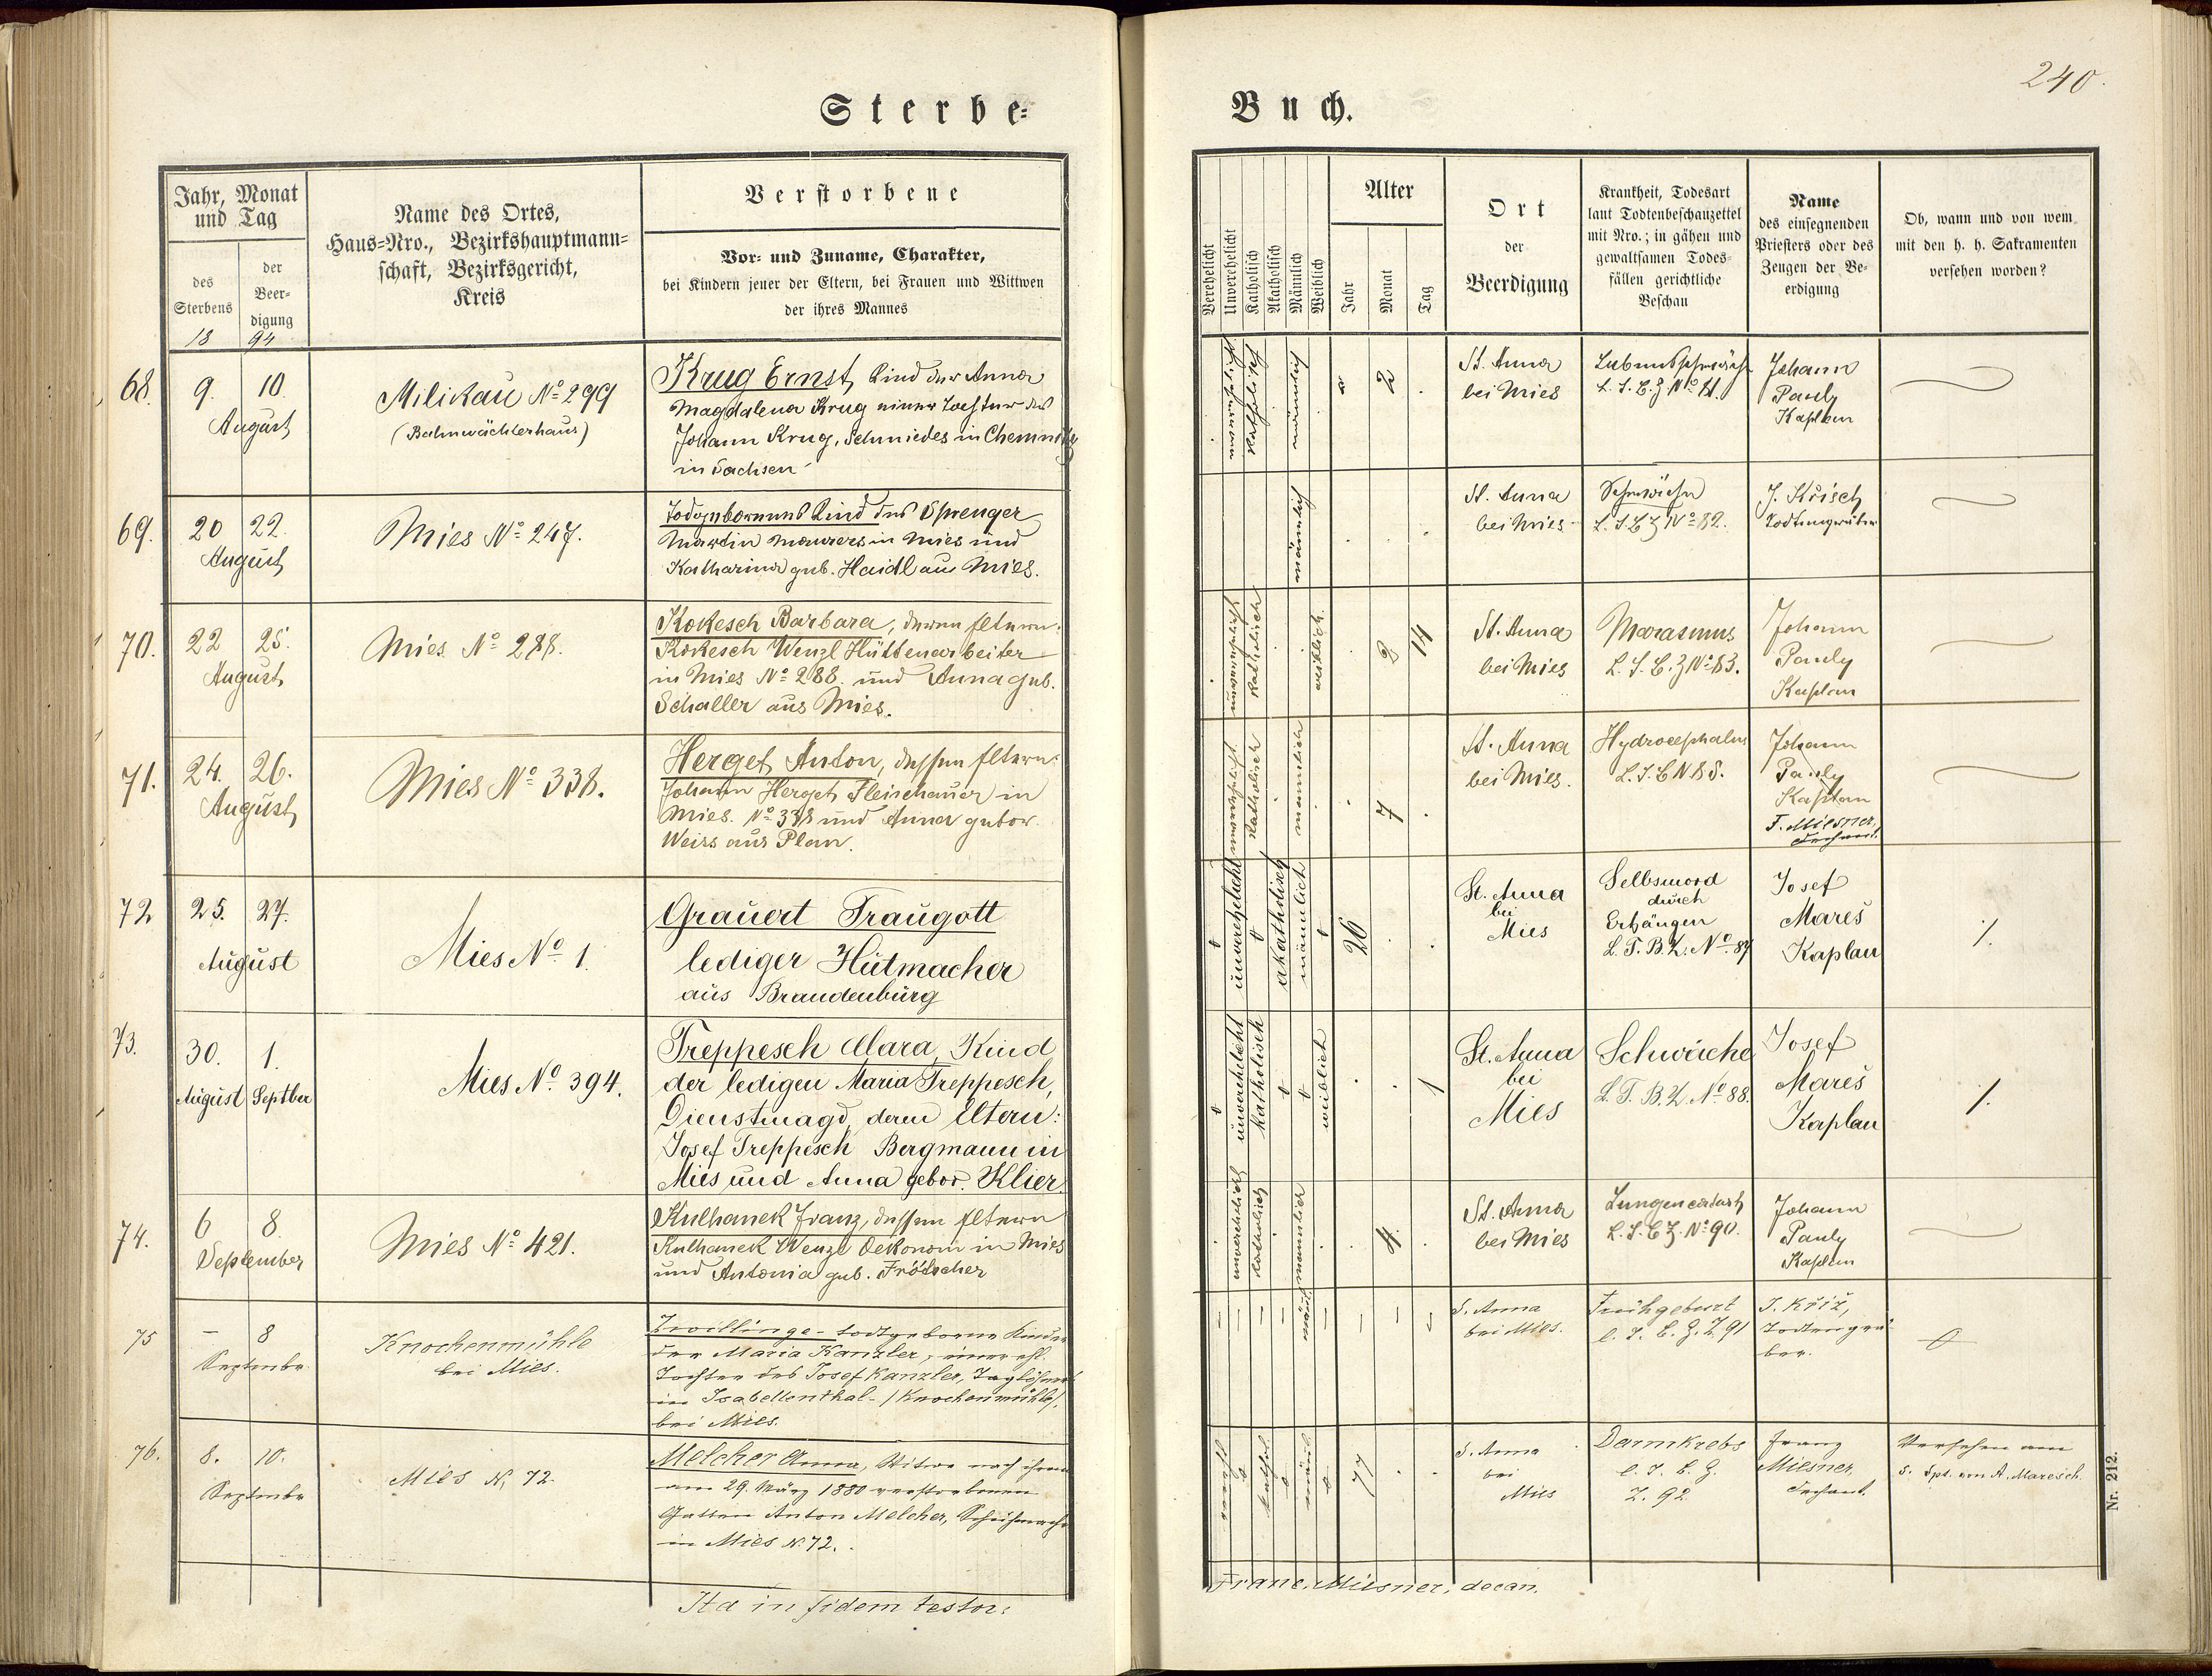 240.
Sterbe-
Buch.
Jahr, Monat
und Tag
des
Sterbens
der
Beer-
digung
18 94
Name des Ortes,
Haus-Nro., Bezirkshauptmann-
schaft, Bezirksgericht,
Kreis
Verstorbene
Vor- und Zuname, Charakter,
bei Kindern jener der Eltern, bei Frauen und Wittwen
der ihres Mannes
Verehelicht
Unverehelicht
Katholisch
Akatholisch
Männlich
Weiblich
Alter
Jahr
Monat
Tag
Ort
der
Beerdigung
Krankheit, Todesart
laut Todtenbeschauzettel
mit Nro.; in gähen und
gewaltsamen Todes-
fällen gerichtliche
Beschau
Name
des einsegnenden
Priesters oder des
Zeugen der Be-
erdigung
Ob, wann und von wem
mit den h. h. Sakramenten
versehen worden?
68.
9. 10.
August
Milikau No 299
(Bahnwächterhaus)
Krug Ernst, Kind der Anna
Magdalena Krug einer Tochter des
Johann Krug, Schmiedes in Chemnitz
in Sachsen
katholisch
männlich
2
St. Anna
bei Mies
Lebensschwäche
L. T. B. Z No 81.
Johann
Pauly
Kaplan
69.
20 22.
August
Mies No 247.
Todgeborenes Kind des Sprenger
Martin Maurers in Mies und
Katharina geb. Haidl au Mies.
männlich
St. Anna
bei Mies
Schwäche
L. T. B Z No 82.
J. Krisch
Todtengräber
70.
22 25.
August
Mies No 288.
Kokesch Barbara, deren Eltern:
Kokesch Wenzl Hüttenarbeiter
in Mies No 288. und Anna geb.
Schaller aus Mies.
katholisch
weiblich.
2
14
St. Anna
bei Mies
Marasmus
L. T. B. Z No 83.
Johann
Pauly
Kaplan
71.
24. 26.
August
Mies No 338.
Herget Anton, dessen Eltern:
Johann Herget Fleischauer in
Mies. No 338 und Anna gebor.
Weiss aus Plan.
unverehelicht
katholisch
männlich
7
St. Anna
bei Mies.
Hydrocephalus
L. T. B N 85.
Johann
Pauly
Kaplan
F. Miesner,
Dechant.
72
25. 27.
August
Mies No 1.
Grauert Traugott
lediger Hutmacher
aus Brandenburg
unverehelicht
akatholisch
männlich
26
St. Anna
bei
Mies
Selbsmord
durch
Erhängen
L. T. B. Z. No 87
Josef
Mareš
Kaplan
%.
73.
30. 1.
August Septber
Mies No 394.
Treppesch Clara, Kind
der ledigen Maria Treppesch,
Dienstmagd, deren Eltern:
Josef Treppesch Bergmann in
Mies und Anna gebor. Klier.
unverehelicht
katholisch
weiblich
1
St. Anna
bei
Mies
Schwäche
L. T. B. Z. No 88.
Josef
Mareš
Kaplan
%.
74.
6 8.
September
Mies No 421.
Kulhanek Franz, dessen Eltern
Kulhanek Wenzl Oekonom in Mies
und Antonia geb. Frötscher
unverehelich
katholisch
männlich
4.
St. Anna
bei Mies
Lungencatarh
L. T. B Z. No 90.
Johann
Pauly
Kaplan
75
– 8
Septembr.
Knochenmühle
bei Mies.
Zwillinge – todtgeborne Kinder
der Maria Kanzler, einer ehl.
Tochter des Josef Kanzler, Taglöhners
in Isabellenthal – /Knochenmühle/,
bei Mies.
männl.
S. Anna
bei Mies.
Frühgeburt
l. T. B. Z. Z 91
J. Križ,
Todtengrä-
ber.
76.
8. 10.
Septembr
Mies N. 72.
Melcher Anna, Witwe nach ihrem
am 29. März 1880 verstorbenen
Gatten Anton Melcher, Schuhmacher
in Mies N. 72.
77
S. Anna
bei
Mies
Darmkrebs
l. T. B. Z.
Z. 92
Franz
Miesner,
Dechant.
Versehen am
5. Spt. von A. Maresch.
Nr. 212.
Ita in fidem testor:
Franc. Miesner, decan.